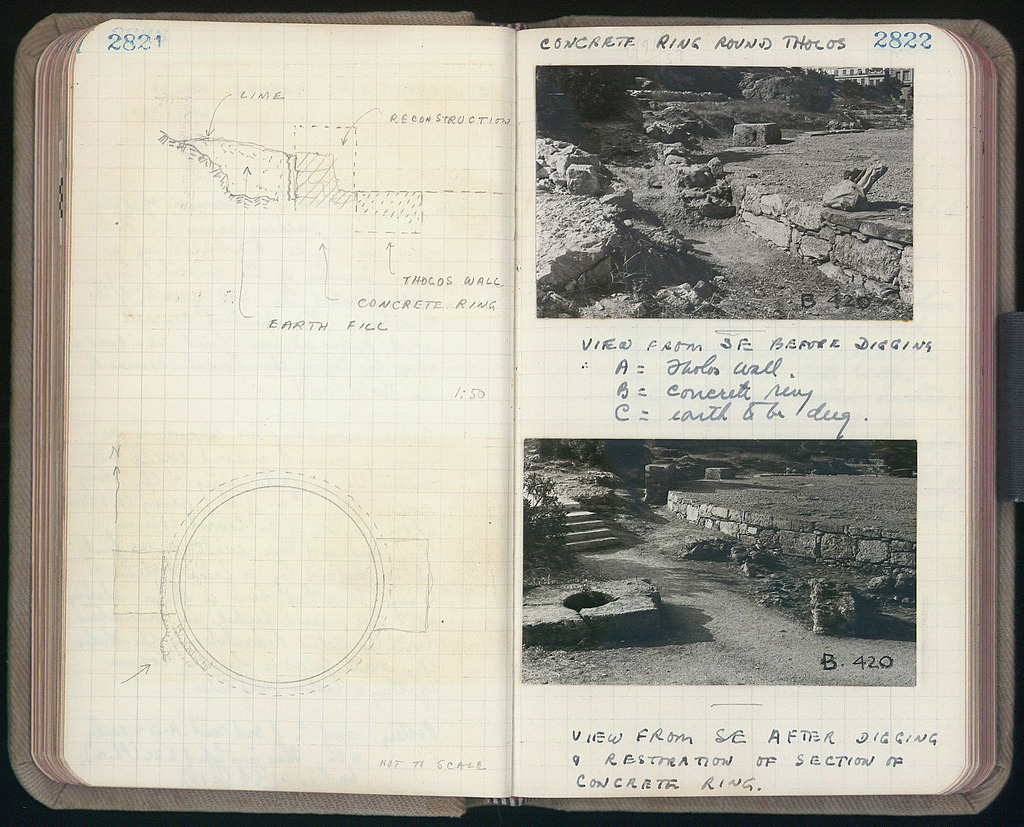 2821
LIME
RECONSTRUCTION
THOLOS WALL
CONCRETE RING
EARTH FILL
1:50
N
NOT TO SCALE
2822
CONCRETE RING ROUND THOLOS
B 420
VIEW FROM SE BEFORE DIGGING
A = Tholos wall.
B = concrete ring
C = earth to be dug.
B. 420
VIEW FROM SE AFTER DIGGING
& RESTORATION OF SECTION OF
CONCRETE RING.